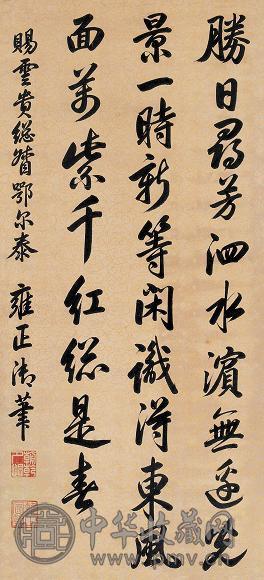 勝日尋芳泗水濱無邊光
景一時新等閑識得東風
面萬紫千紅總是春
賜雲貴總督鄂尔泰 雍正御筆
中华收藏网
www.pmv.cn